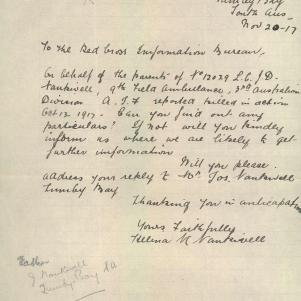 Tumby Bay
South Aus
Nov 20-17
To the Red Cross Information Bureau.
On behalf of the parents of No 12029 L.C.J.D.
Nankivell, 9th Field Ambulance, 3rd Australian
Division A.I.F reported killed in action
Oct 12. 1917. Can you find out any
particulars? If not will you kindly
inform us where we are likely to get
further information
Will you please
address your reply to Mr Jos. Nankivell
Tumby Bay
Thanking You in anticipation
Yours Faithfully
Helena K Nankivell
Father
J Nankivell
Tumby Bay SA